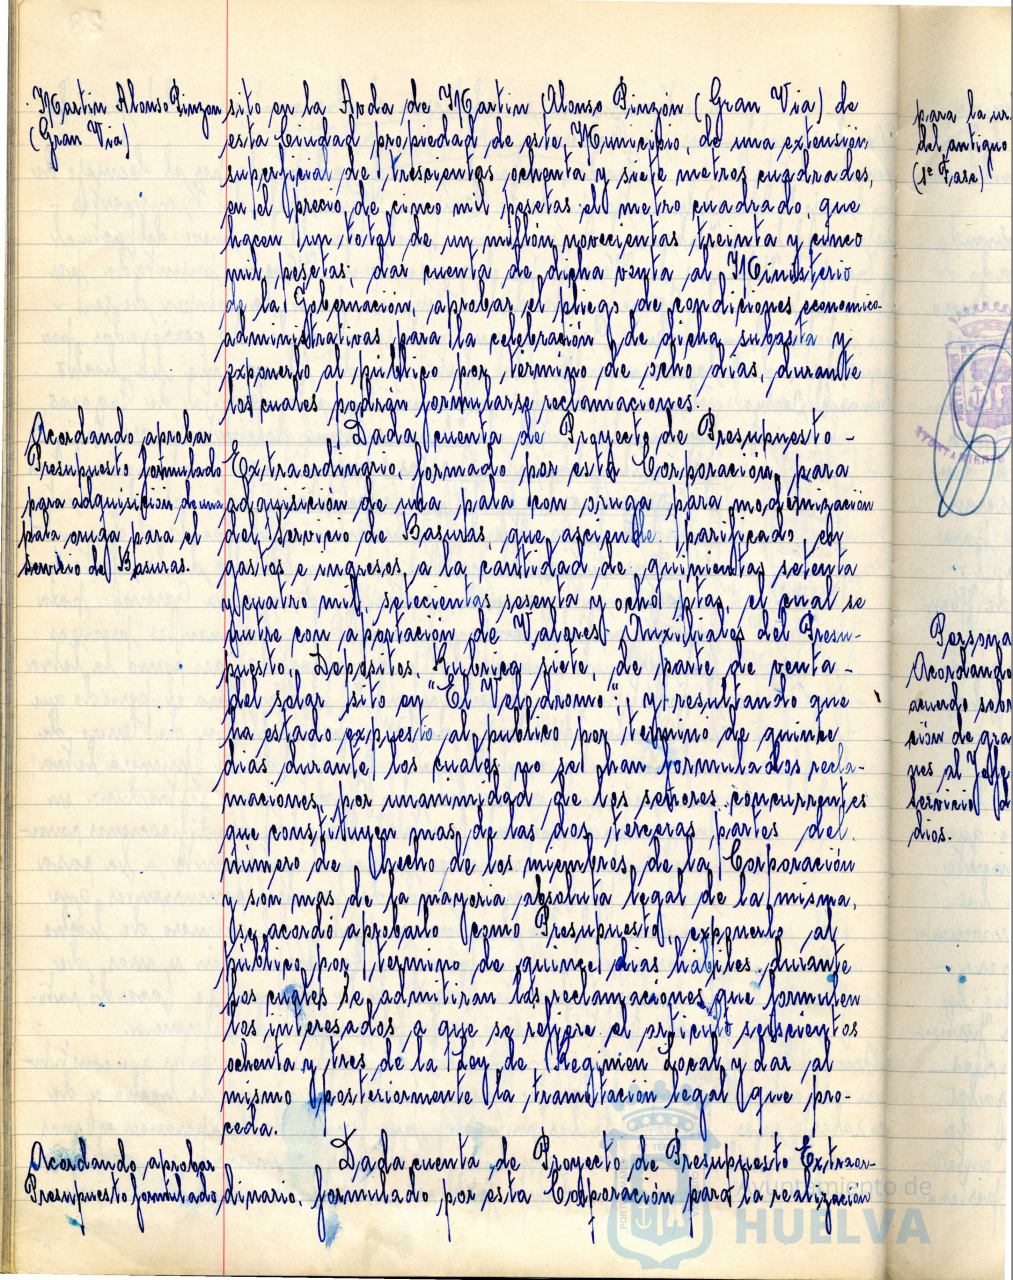 Martin Alonso Pinzon
(Gran Via)
sito en la Avda de Martin Alonso Pinzón (Gran Via) de
esta Ciudad propiedad de este Municipio, de una extensión
superficial de trescientos ochenta y siete metros cuadrados,
en el precio de cinco mil pesetas el metro cuadrado, que
hacen un total de un millón novecientas treinta y cinco
mil pesetas; dar cuenta de dicha venta al Ministerio
de la Gobernación, aprobar el pliego de condiciones economico-
administrativas para la celebración de dicha subasta y
exponerlo al público por término de ocho dias, durante
los cuales podrán formularse reclamaciones.
Acordando aprobar
Presupuesto formulado
para adquisición de una
pala oruga para el
Servicio de Basuras.
Dada cuenta de Proyecto de Presupuesto -
Extraordinario, formado por esta Corporación, para
adquisición de una pala con oruga para modernización
del Servicio de Basuras, que asciende, parificado en
gastos e ingresos, a la cantidad de quinientas setenta
y cuatro mil, setecientas sesenta y ocho ptas, el cual se
nutre con aportación de Valores Auxiliales del Presu-
puesto, Depósitos, Rúbrica siete, de parte de venta -
del solar sito en "El Velodromo"; y resultando que
ha estado expuesto al público por término de quince
dias, durante los cuales no se han formulados recla-
maciones, por unanimidad de los señores concurrentes
que constituyen mas de las dos terceras partes del
número de hecho de los miembros de la Corporación
y son mas de la mayoria absoluta legal de la misma,
se acordó aprobarlo como Presupuesto, exponerlo al
público por término de quince dias hábiles, durante
los cuales se admitiran las reclamaciones que formulen
los interesados a que se refiere el articulo seiscientos
ochenta y tres de la Ley de Regimen Local y dar al
mismo posteriormente la tramitación legal que pro-
ceda.
Acordando aprobar
Presupuesto formulado
Dada cuenta de Proyecto de Presupuesto Extraor-
dinario, formulado por esta Corporación para la realización
para la ur
del antiguo
(1ª Fase)
Persona
Acordando
acuerdo sobr
ción de gra
nes al Jefe
Servicio d
dios.
Ayuntamiento de
HUELVA